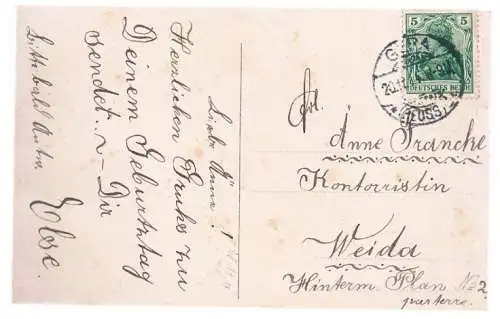 Liebe Änne!
Herzlichen Gruß zu
Deinem Geburtstag
sendet Dir
Else.
Bitte bald Antw.
5 5
DEUTSCHES REICH
GERA
20.11.
(REUSS)
Frl.
Änne Francke
Kontorristin
Weida
Hinterm Plan No 2.
parterre.